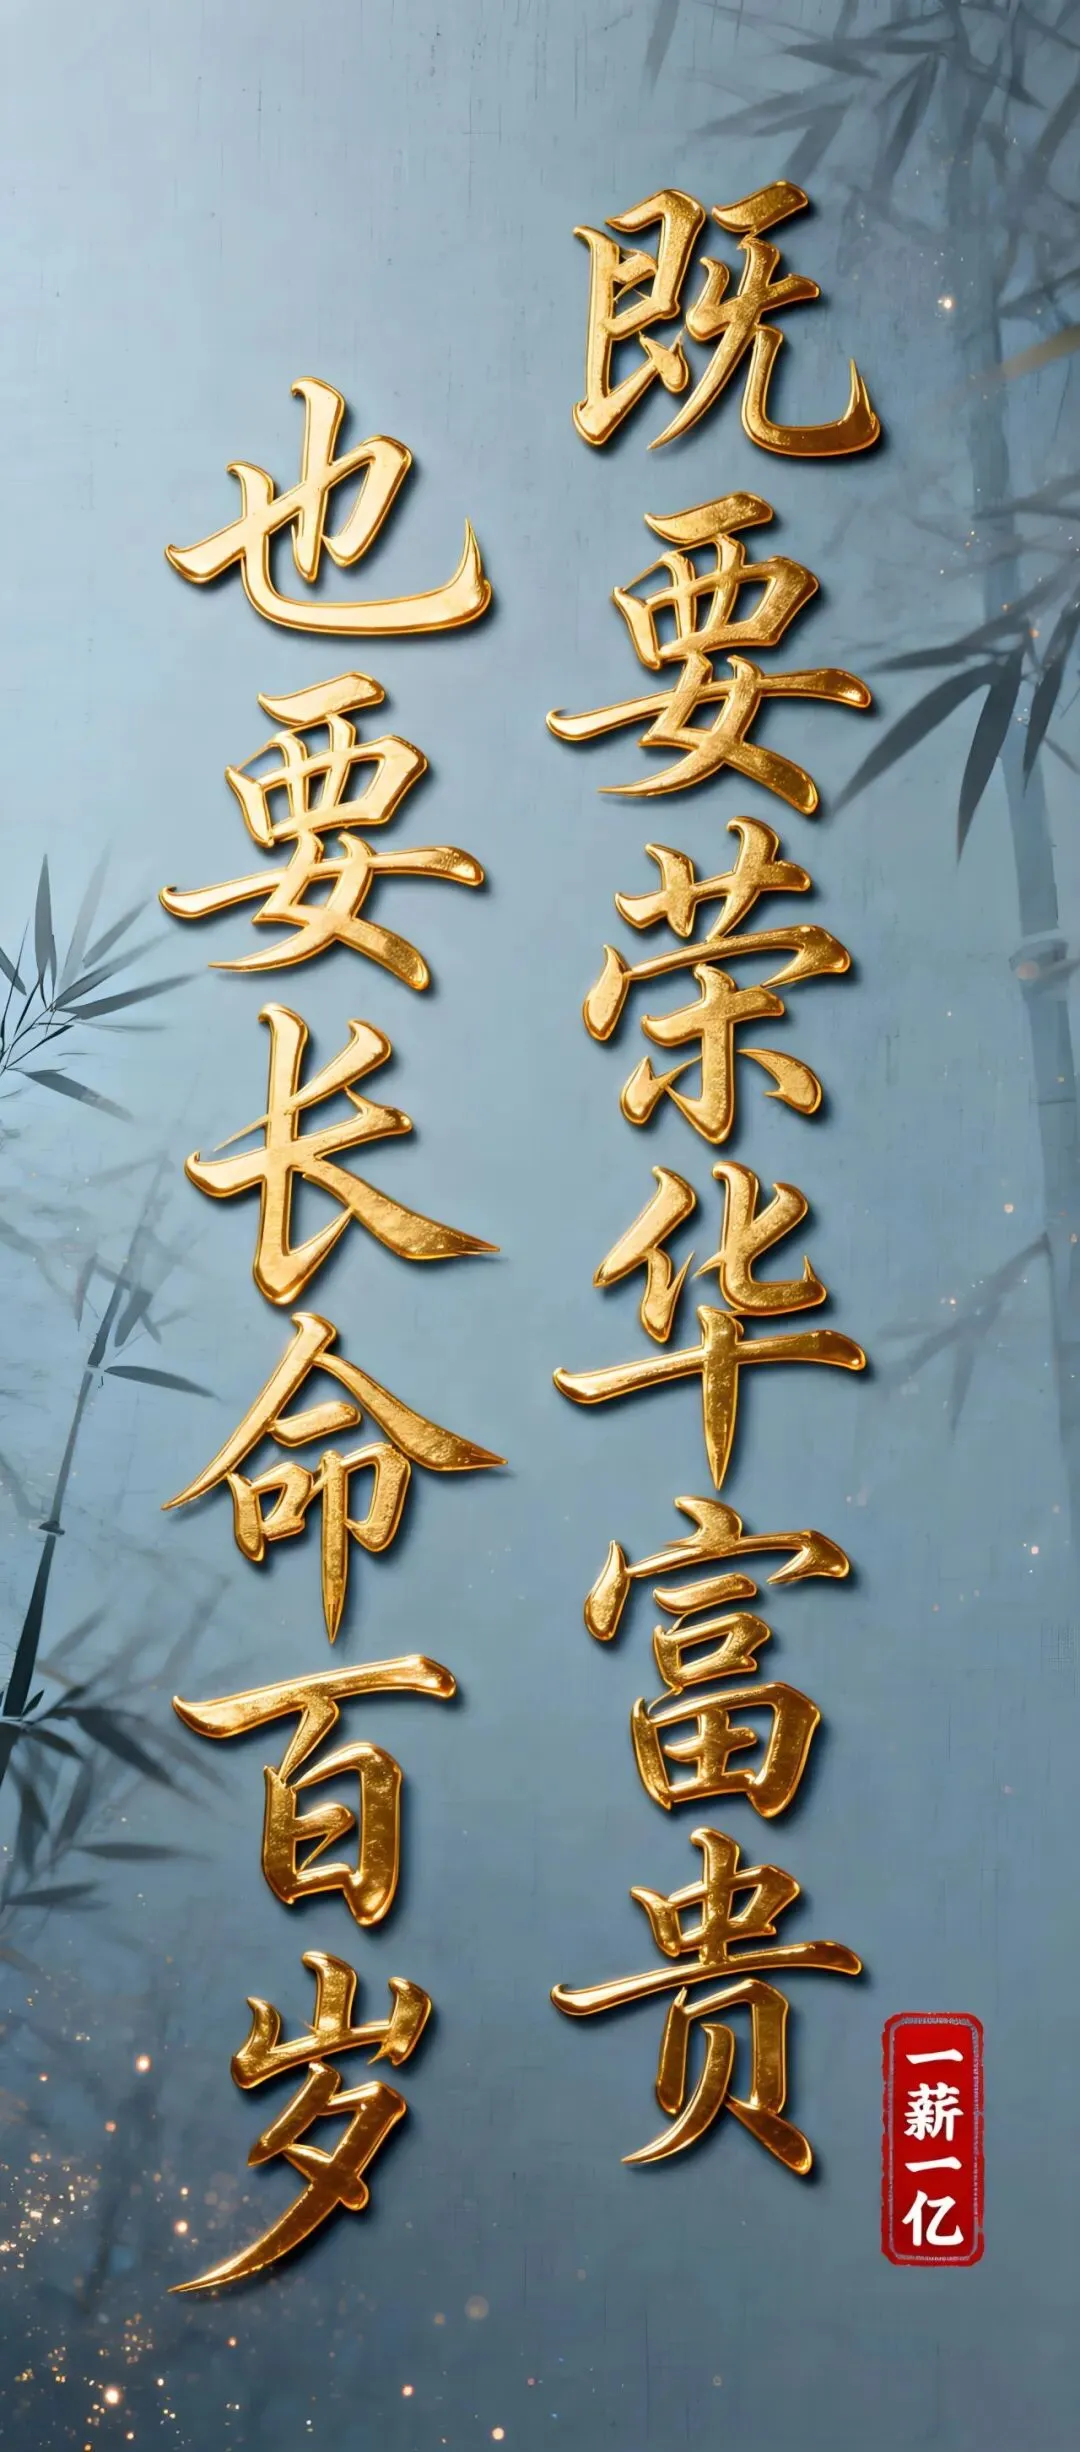 既要荣华富贵
也要长命百岁
一薪一亿